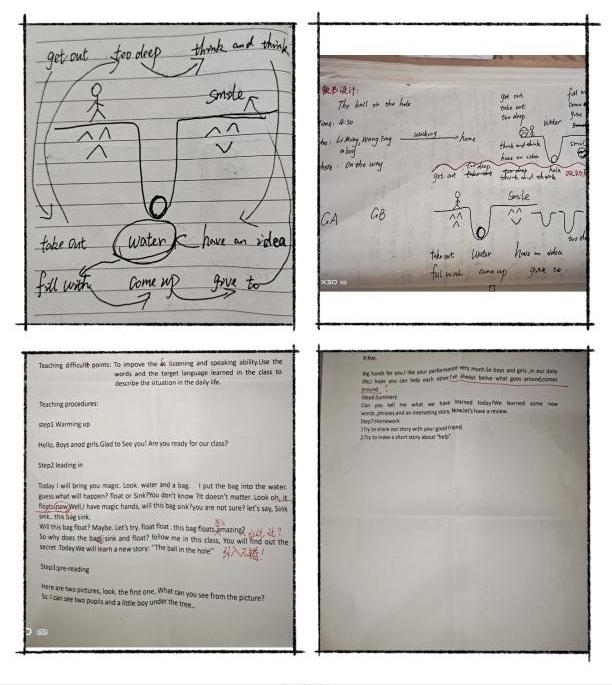 get out too deep think and think
smile
take out water have an idea
fill with come up give to
板书设计:
The ball in the hole
Time: 4:30
Li Ming, Wang Ting walking home
a boy
on the way
get out
take out
too deep
water
think and think
have an idea
hole
get out think and think
GA GB
Smile
take out water have an idea
fill with come up give to
X30
Teaching difficult points: To impove the listening and speaking ability.Use the
words and the target language learned in the class to
describe the situation in the daily life.
Teaching procedures:
step1 Warming up
Hello, Boys anod girls.Glad to See you! Are you ready for our class?
Step2 leading in
Today I will bring you magic. Look. water and a bag. I put the bag into the water.
guess.what will happen? float or Sink?You don't know ?It doesn't matter. Look oh, it
floats now,Well,I have magic hands, will this bag sink?you are not sure? let's say, Sink
sink, this bag sink.
Will this bag float? Maybe. Let's try. float float . this bag floats,amazing?
So why does the bag sink and float? follow me in this class, You will find out the
secret .Today.We will learn a new story: "The ball in the hole"
引入不错!
Step3:pre-reading
Here are two pictures, look, the first one, What can you see from the picture?
Ss: I can see two pupils and a little boy under the tree..
Big hands for you.I like your performance very much.So boys and girls ,in our daily
life,I hope you can help each other.I've always belive what goes around,comes
around.
Step6:Summary
Can you tell me what we have learned today?We learned some new
words ,phrases,and an interseting story. Now,let's have a review.
Step7:Homework
1Try to share our story with your good friend.
2 Try to make a short story about "help".